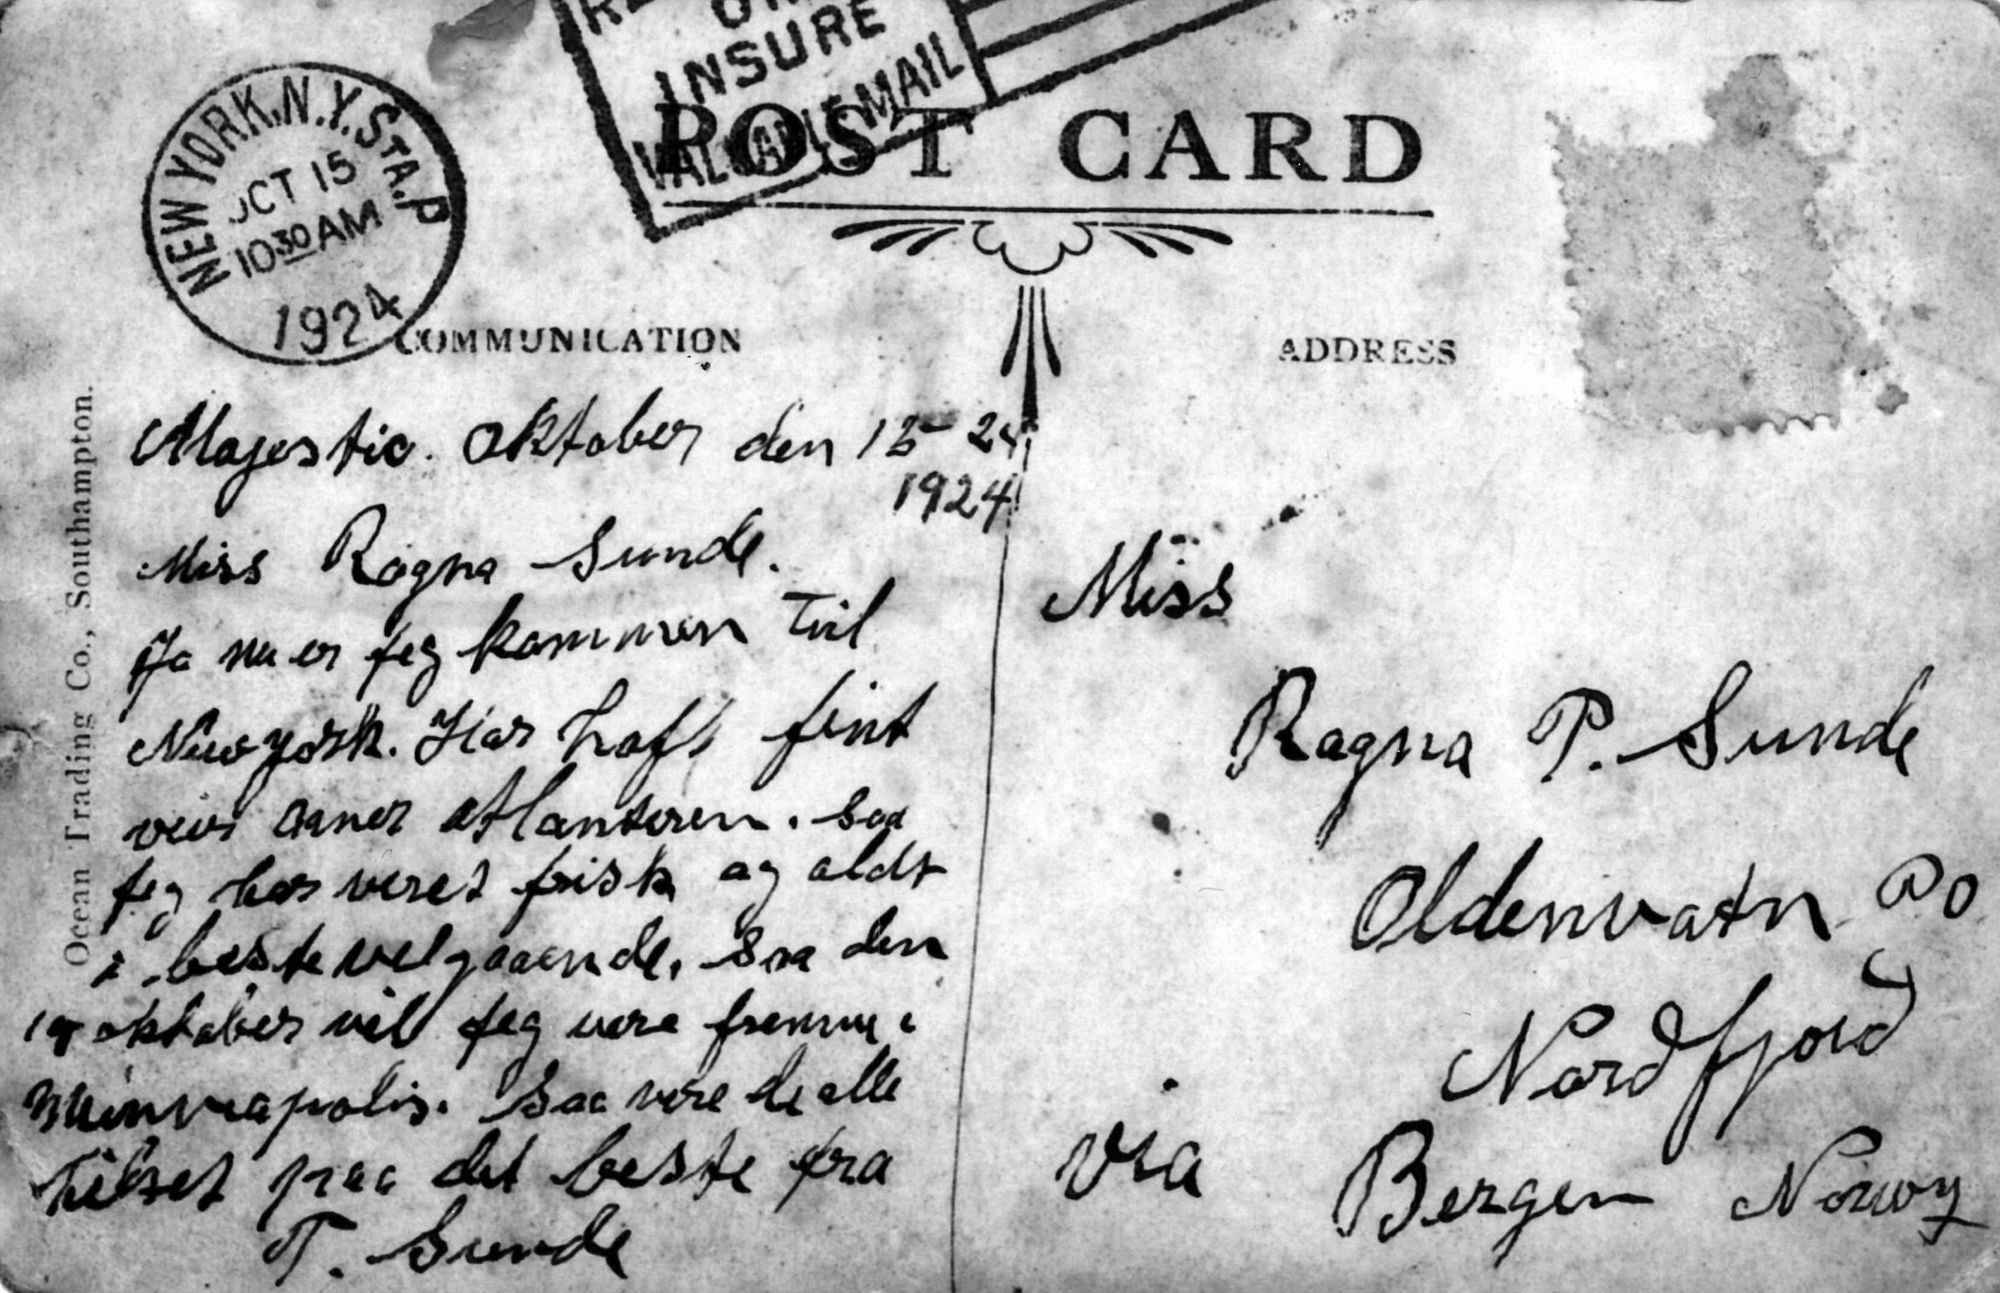 OR
INSURE
VALUABLE MAIL
NEW YORK, N.Y. STA. P
OCT 15
10 30 AM
1924
POST CARD
COMMUNICATION
ADDRESS
Ocean Trading Co., Southampton.
Majestic. Oktober den 13 - 24
1924
Miss Ragna Sunde.
Ja nu er jeg kommen Til
New york. Har haft fint
veir over atlanteren. Saa
jeg har veret frisk og aldt
i beste velgaaende. Saa den
oktober vil jeg vere fremme i
Minneapolis. Saa vere de alle
hilset paa det beste fra
T. Sunde
Miss
Ragna P. Sunde
Oldenvatn Po
Nordfjord
via Bergen Norwy